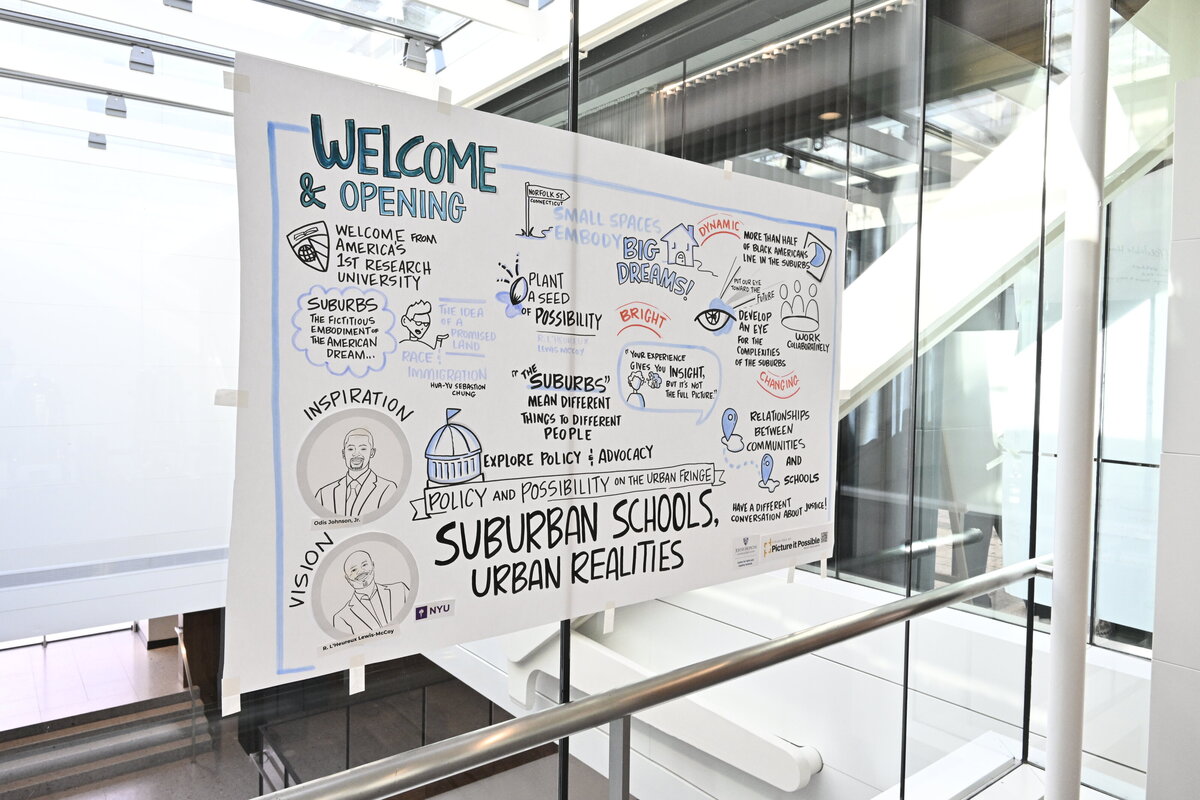 WELCOME
& OPENING
WELCOME FROM
AMERICA'S
1ST RESEARCH
UNIVERSITY
SUBURBS
THE FICTITIOUS
EMBODIMENT OF
THE AMERICAN
DREAM...
THE IDEA
OF A
PROMISED
LAND
RACE &
IMMIGRATION
HUA-YU SEBASTIAN
CHUNG
NORFOLK ST.
CONNECTICUT
SMALL SPACES
EMBODY
BIG
DREAMS!
DYNAMIC
MORE THAN HALF
OF BLACK AMERICANS
LIVE IN THE SUBURBS
PLANT
A SEED
OF POSSIBILITY
R. L'HEUREUX
LEWIS-MCCOY
BRIGHT
PUT OUR EYE
TOWARD THE
FUTURE
DEVELOP
AN EYE
FOR THE
COMPLEXITIES
OF THE SUBURBS
WORK
COLLABORATIVELY
CHANGING
"THE
"SUBURBS"
MEAN DIFFERENT
THINGS TO DIFFERENT
PEOPLE
"YOUR EXPERIENCE
GIVES YOU INSIGHT,
BUT IT'S NOT
THE FULL PICTURE."
RELATIONSHIPS
BETWEEN
COMMUNITIES
AND
SCHOOLS
HAVE A DIFFERENT
CONVERSATION ABOUT JUSTICE!
INSPIRATION
Odis Johnson, Jr.
EXPLORE POLICY & ADVOCACY
POLICY AND POSSIBILITY ON THE URBAN FRINGE
SUBURBAN SCHOOLS,
URBAN REALITIES
VISION
R. L'Heureux Lewis-McCoy
NYU
Picture it Possible